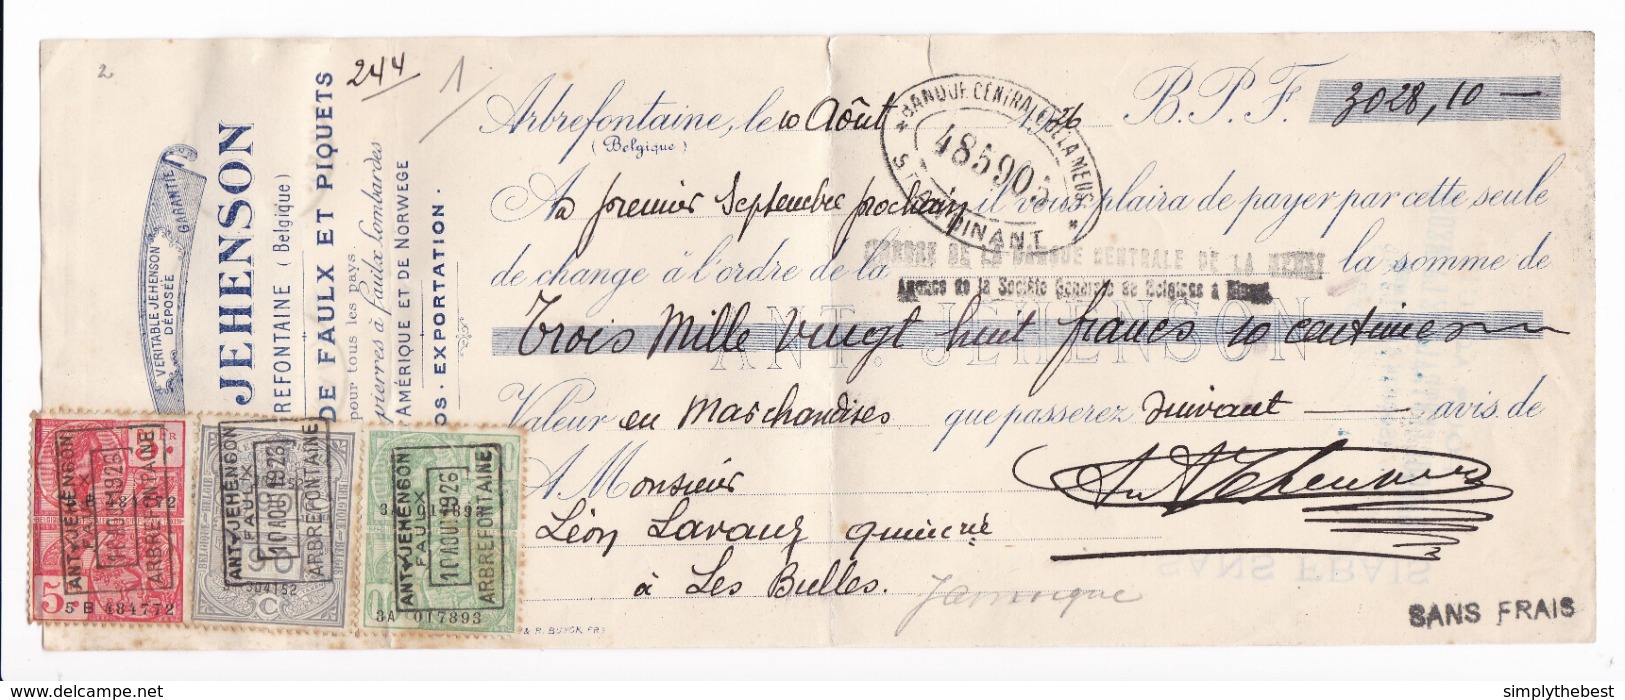 2
244
1
VERITABLE JEHENSON
DÉPOSÉE
GARANTIE
JEHENSON
REFONTAINE (Belgique)
DE FAULX ET PIQUETS
pour tous les pays.
pierres à faulx Lombardes
AMÉRIQUE ET DE NORWEGE
OS. EXPORTATION.
Arbrefontaine, le 10 Août 1926 B.P.F. 3028,10
(Belgique)
BANQUE CENTRALE DE LA MEUSE
485905
DINANT
A premier Septembre prochain il vous plaira de payer par cette seule
de change à l'ordre de la la somme de
ORDRE DE LA BANQUE CENTRALE DE LA MEUSE
Agence de la Société Générale de Belgique à Dinant
ANT. JEHENSON
Trois Mille Vingt huit francs 10 centimes
Valeur en Marchandises que passerez suivant avis de
A Monsieur
Léon Lavaux
à Les Bulles.
Jamoigne
SANS FRAIS
SANS FRAIS
ANT. JEHENSON
FAULX
10 AOU 1926
ARBREFONTAINE
5 B 484772
ANT. JEHENSON
FAULX
10 AOU 1926
ARBREFONTAINE
ANT. JEHENSON
FAULX
10 AOU 1926
ARBREFONTAINE
3A 017893
simplythebest